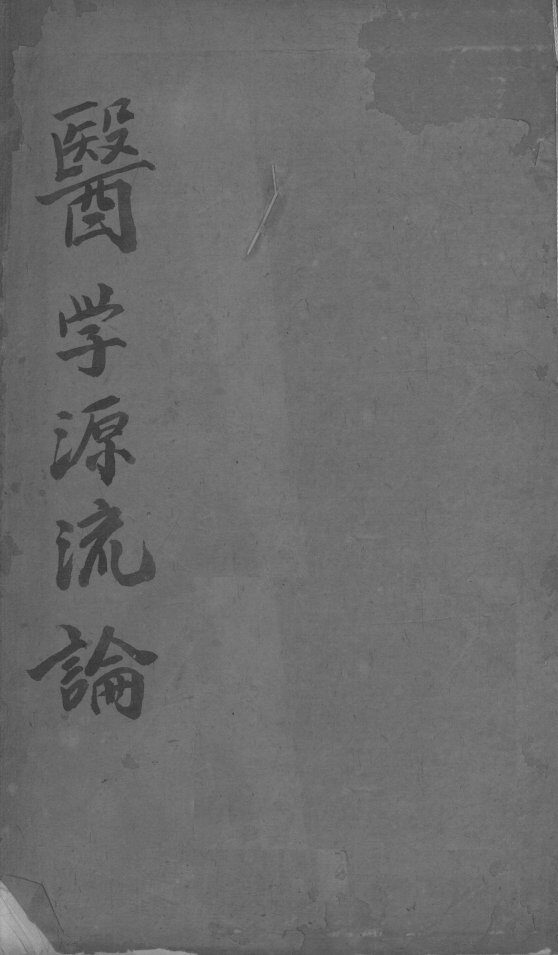 醫学源流論